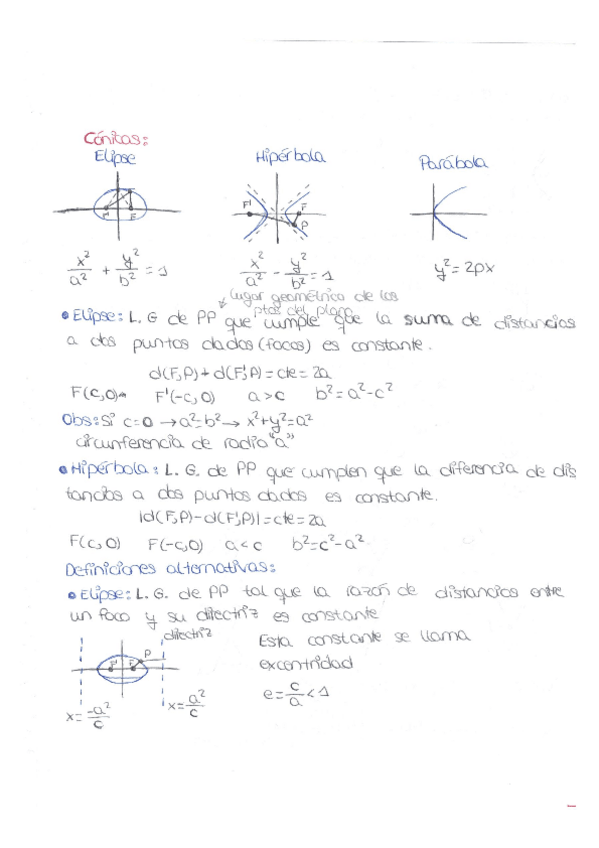 Cónicas:
Elipse Hipérbola Parábola
F' F F' F P
x²/a² + y²/b² = 1 x²/a² - y²/b² = 1 y² = 2px
lugar geométrico de los
ptos del plano
• Elipse: L. G de PP que cumple que la suma de distancias
a dos puntos dados (focos) es constante.
d(F,P) + d(F',P) = cte = 2a
F(C,0) F'(-C,0) a > c b² = a² - c²
Obs: Si c = 0 → a² = b² → x² + y² = a²
circunferencia de radio "a"
• Hipérbola: L. G. de PP que cumplen que la diferencia de dis
tancias a dos puntos dados es constante.
|d(F,P) - d(F',P)| = cte = 2a
F(c,0) F(-c,0) a < c b² = c² - a²
Definiciones alternativas:
• Elipse: L. G. de PP tal que la razón de distancias entre
un foco y su directriz es constante
directriz Esta constante se llama
F' F P excentridad
e = c/a < 1
x = -a²/c x = a²/c